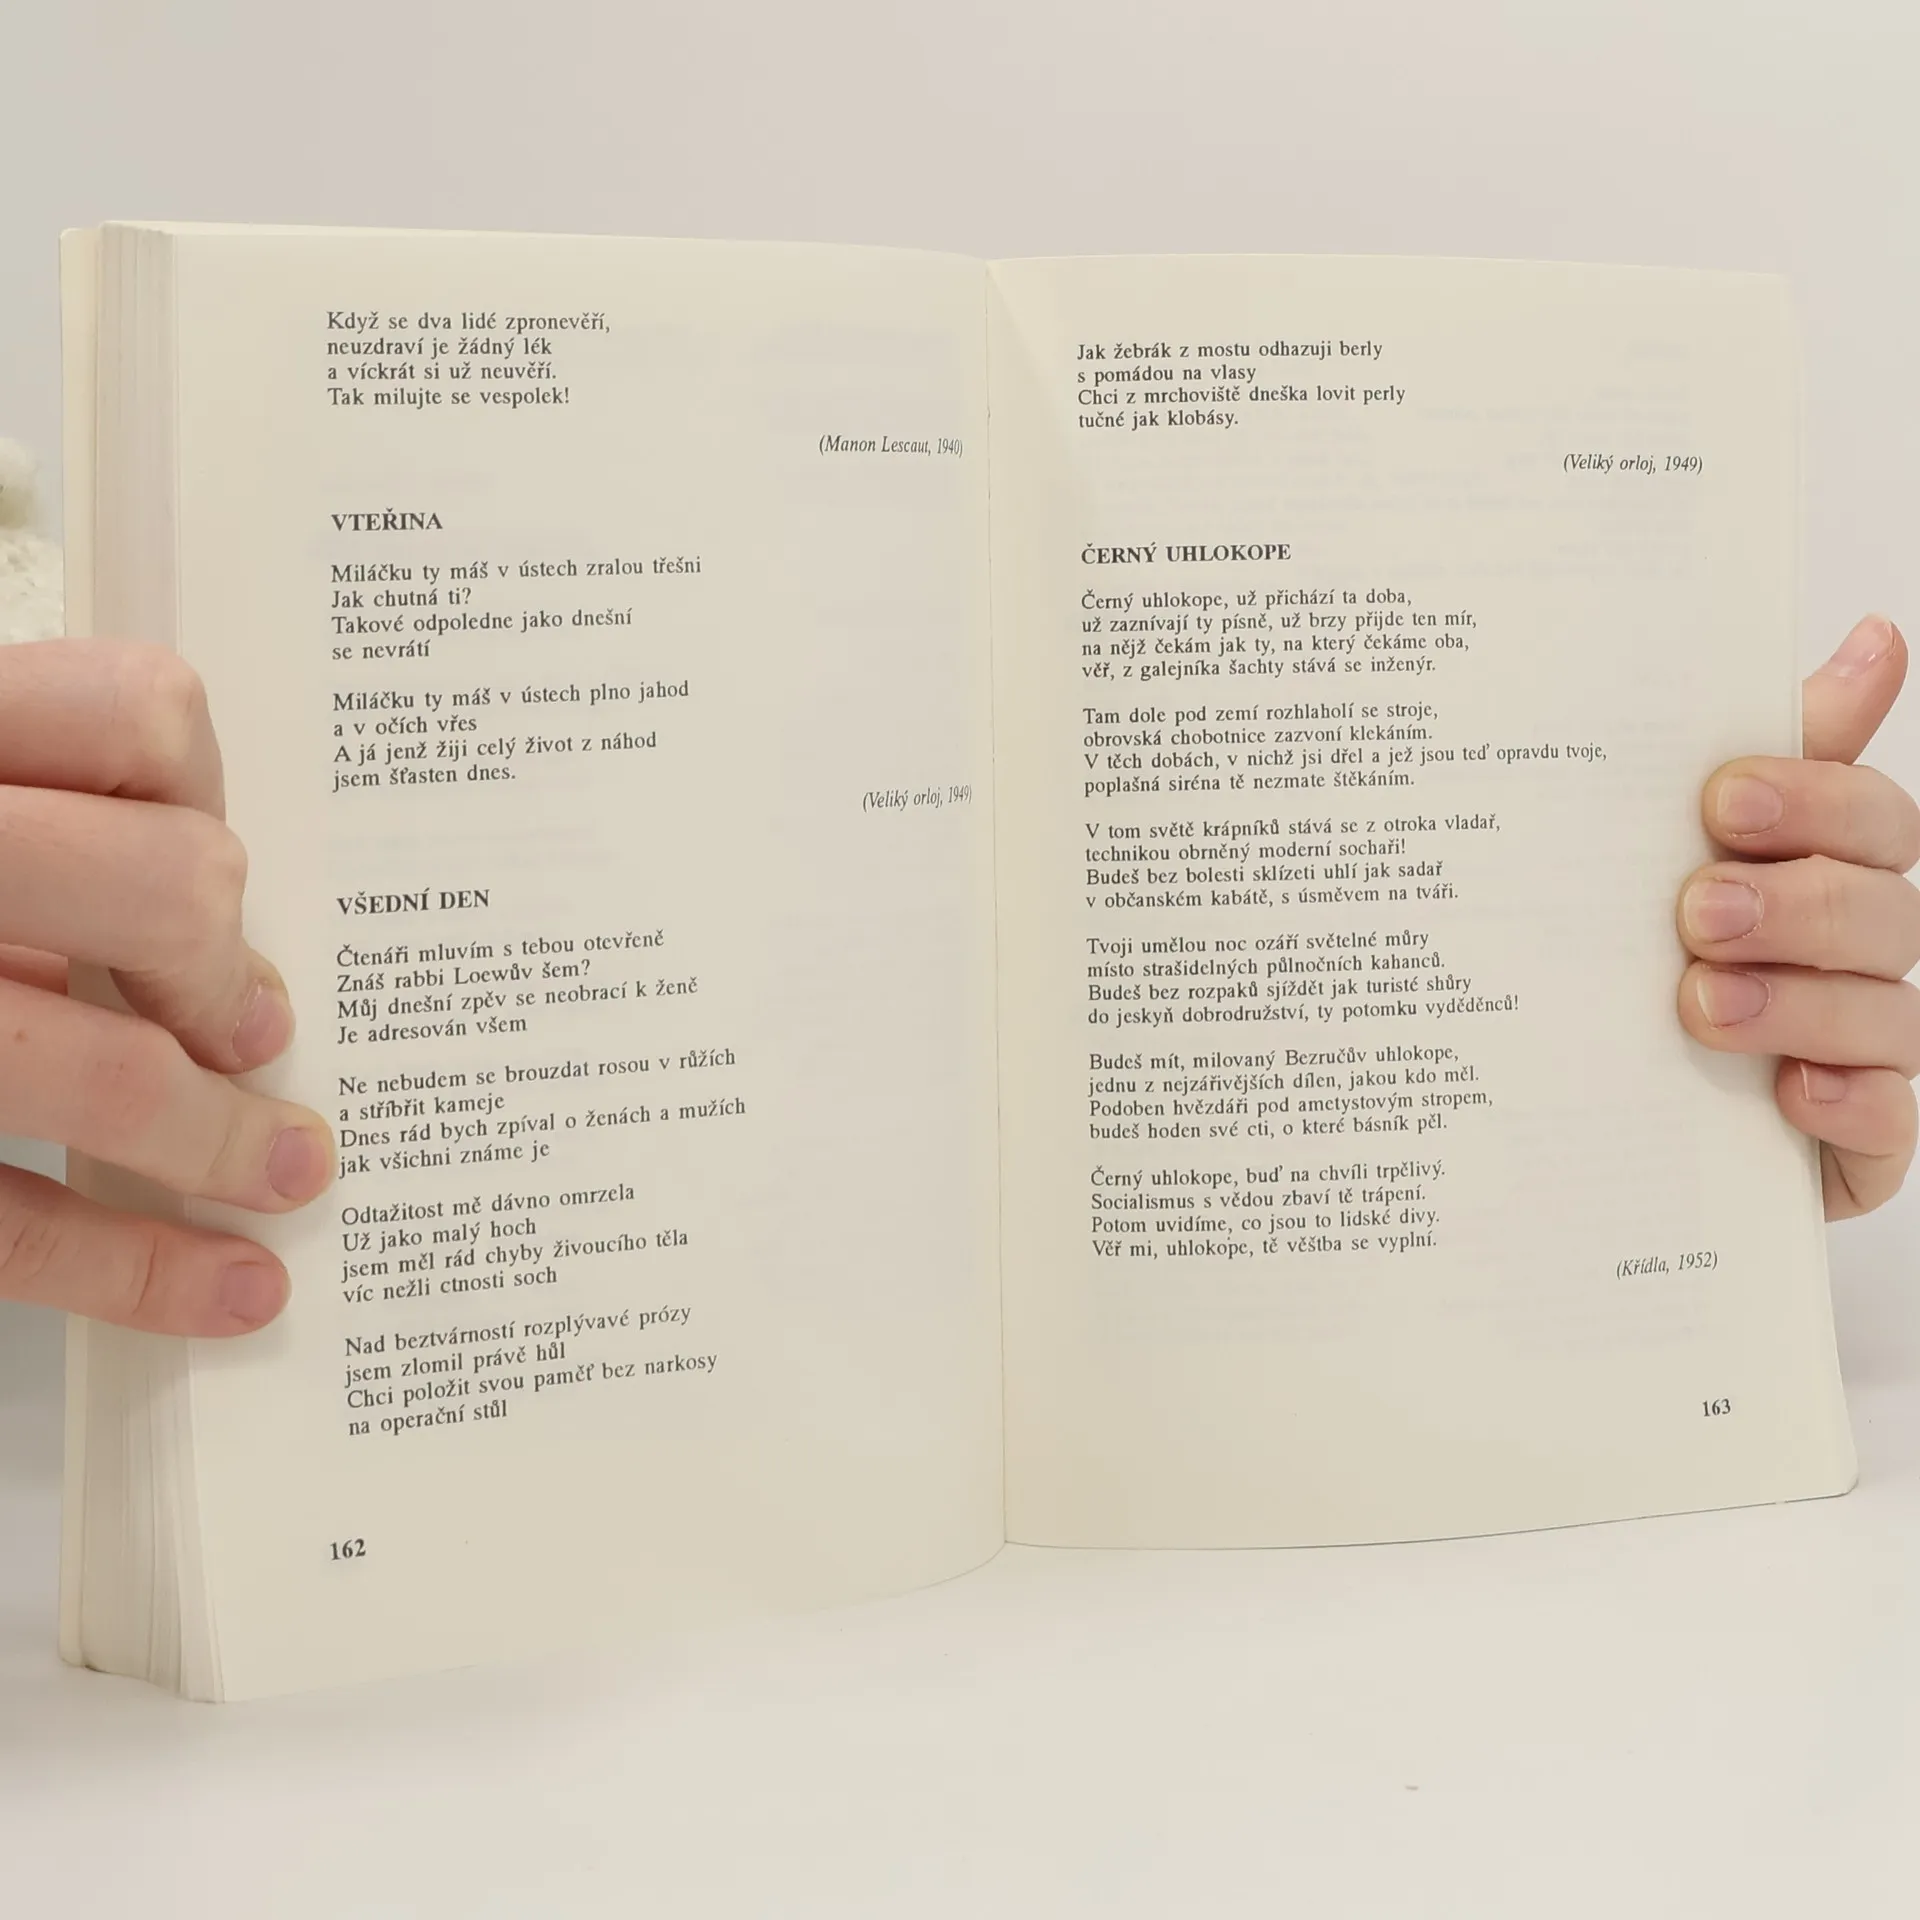 Když se dva lidé zpronevěří,
neuzdraví je žádný lék
a víckrát si už neuvěří.
Tak milujte se vespolek!
(Manon Lescaut, 1940)
VTEŘINA
Miláčku ty máš v ústech zralou třešni
Jak chutná ti?
Takové odpoledne jako dnešní
se nevrátí
Miláčku ty máš v ústech plno jahod
a v očích vřes
A já jenž žiji celý život z náhod
jsem šťasten dnes.
(Veliký orloj, 1949)
VŠEDNÍ DEN
Čtenáři mluvím s tebou otevřeně
Znáš rabbi Loewův šem?
Můj dnešní zpěv se neobrací k ženě
Je adresován všem
Ne nebudem se brouzdat rosou v růžích
a stříbřit kameje
Dnes rád bych zpíval o ženách a mužích
jak všichni známe je
Odtažitost mě dávno omrzela
Už jako malý hoch
jsem měl rád chyby živoucího těla
víc nežli ctnosti soch
Nad beztvárností rozplývavé prózy
jsem zlomil právě hůl
Chci položit svou paměť bez narkosy
na operační stůl
162
Jak žebrák z mostu odhazuji berly
s pomádou na vlasy
Chci z mrchoviště dneška lovit perly
tučné jak klobásy.
(Veliký orloj, 1949)
ČERNÝ UHLOKOPE
Černý uhlokope, už přichází ta doba,
už zaznívají ty písně, už brzy přijde ten mír,
na nějž čekám jak ty, na který čekáme oba,
věř, z galejníka šachty stává se inženýr.
Tam dole pod zemí rozhlaholí se stroje,
obrovská chobotnice zazvoní klekáním.
V těch dobách, v nichž jsi dřel a jež jsou teď opravdu tvoje,
poplašná siréna tě nezmate štěkáním.
V tom světě krápníků stává se z otroka vladař,
technikou obrněný moderní sochaři!
Budeš bez bolesti sklízeti uhlí jak sadař
v občanském kabátě, s úsměvem na tváři.
Tvoji umělou noc ozáří světelné můry
místo strašidelných půlnočních kahanců.
Budeš bez rozpaků sjíždět jak turisté shůry
do jeskyň dobrodružství, ty potomku vyděděnců!
Budeš mít, milovaný Bezručův uhlokope,
jednu z nejzářivějších dílen, jakou kdo měl.
Podoben hvězdáři pod ametystovým stropem,
budeš hoden své cti, o které básník pěl.
Černý uhlokope, buď na chvíli trpělivý.
Socialismus s vědou zbaví tě trápení.
Potom uvidíme, co jsou to lidské divy.
Věř mi, uhlokope, tě věštba se vyplní.
(Křídla, 1952)
163